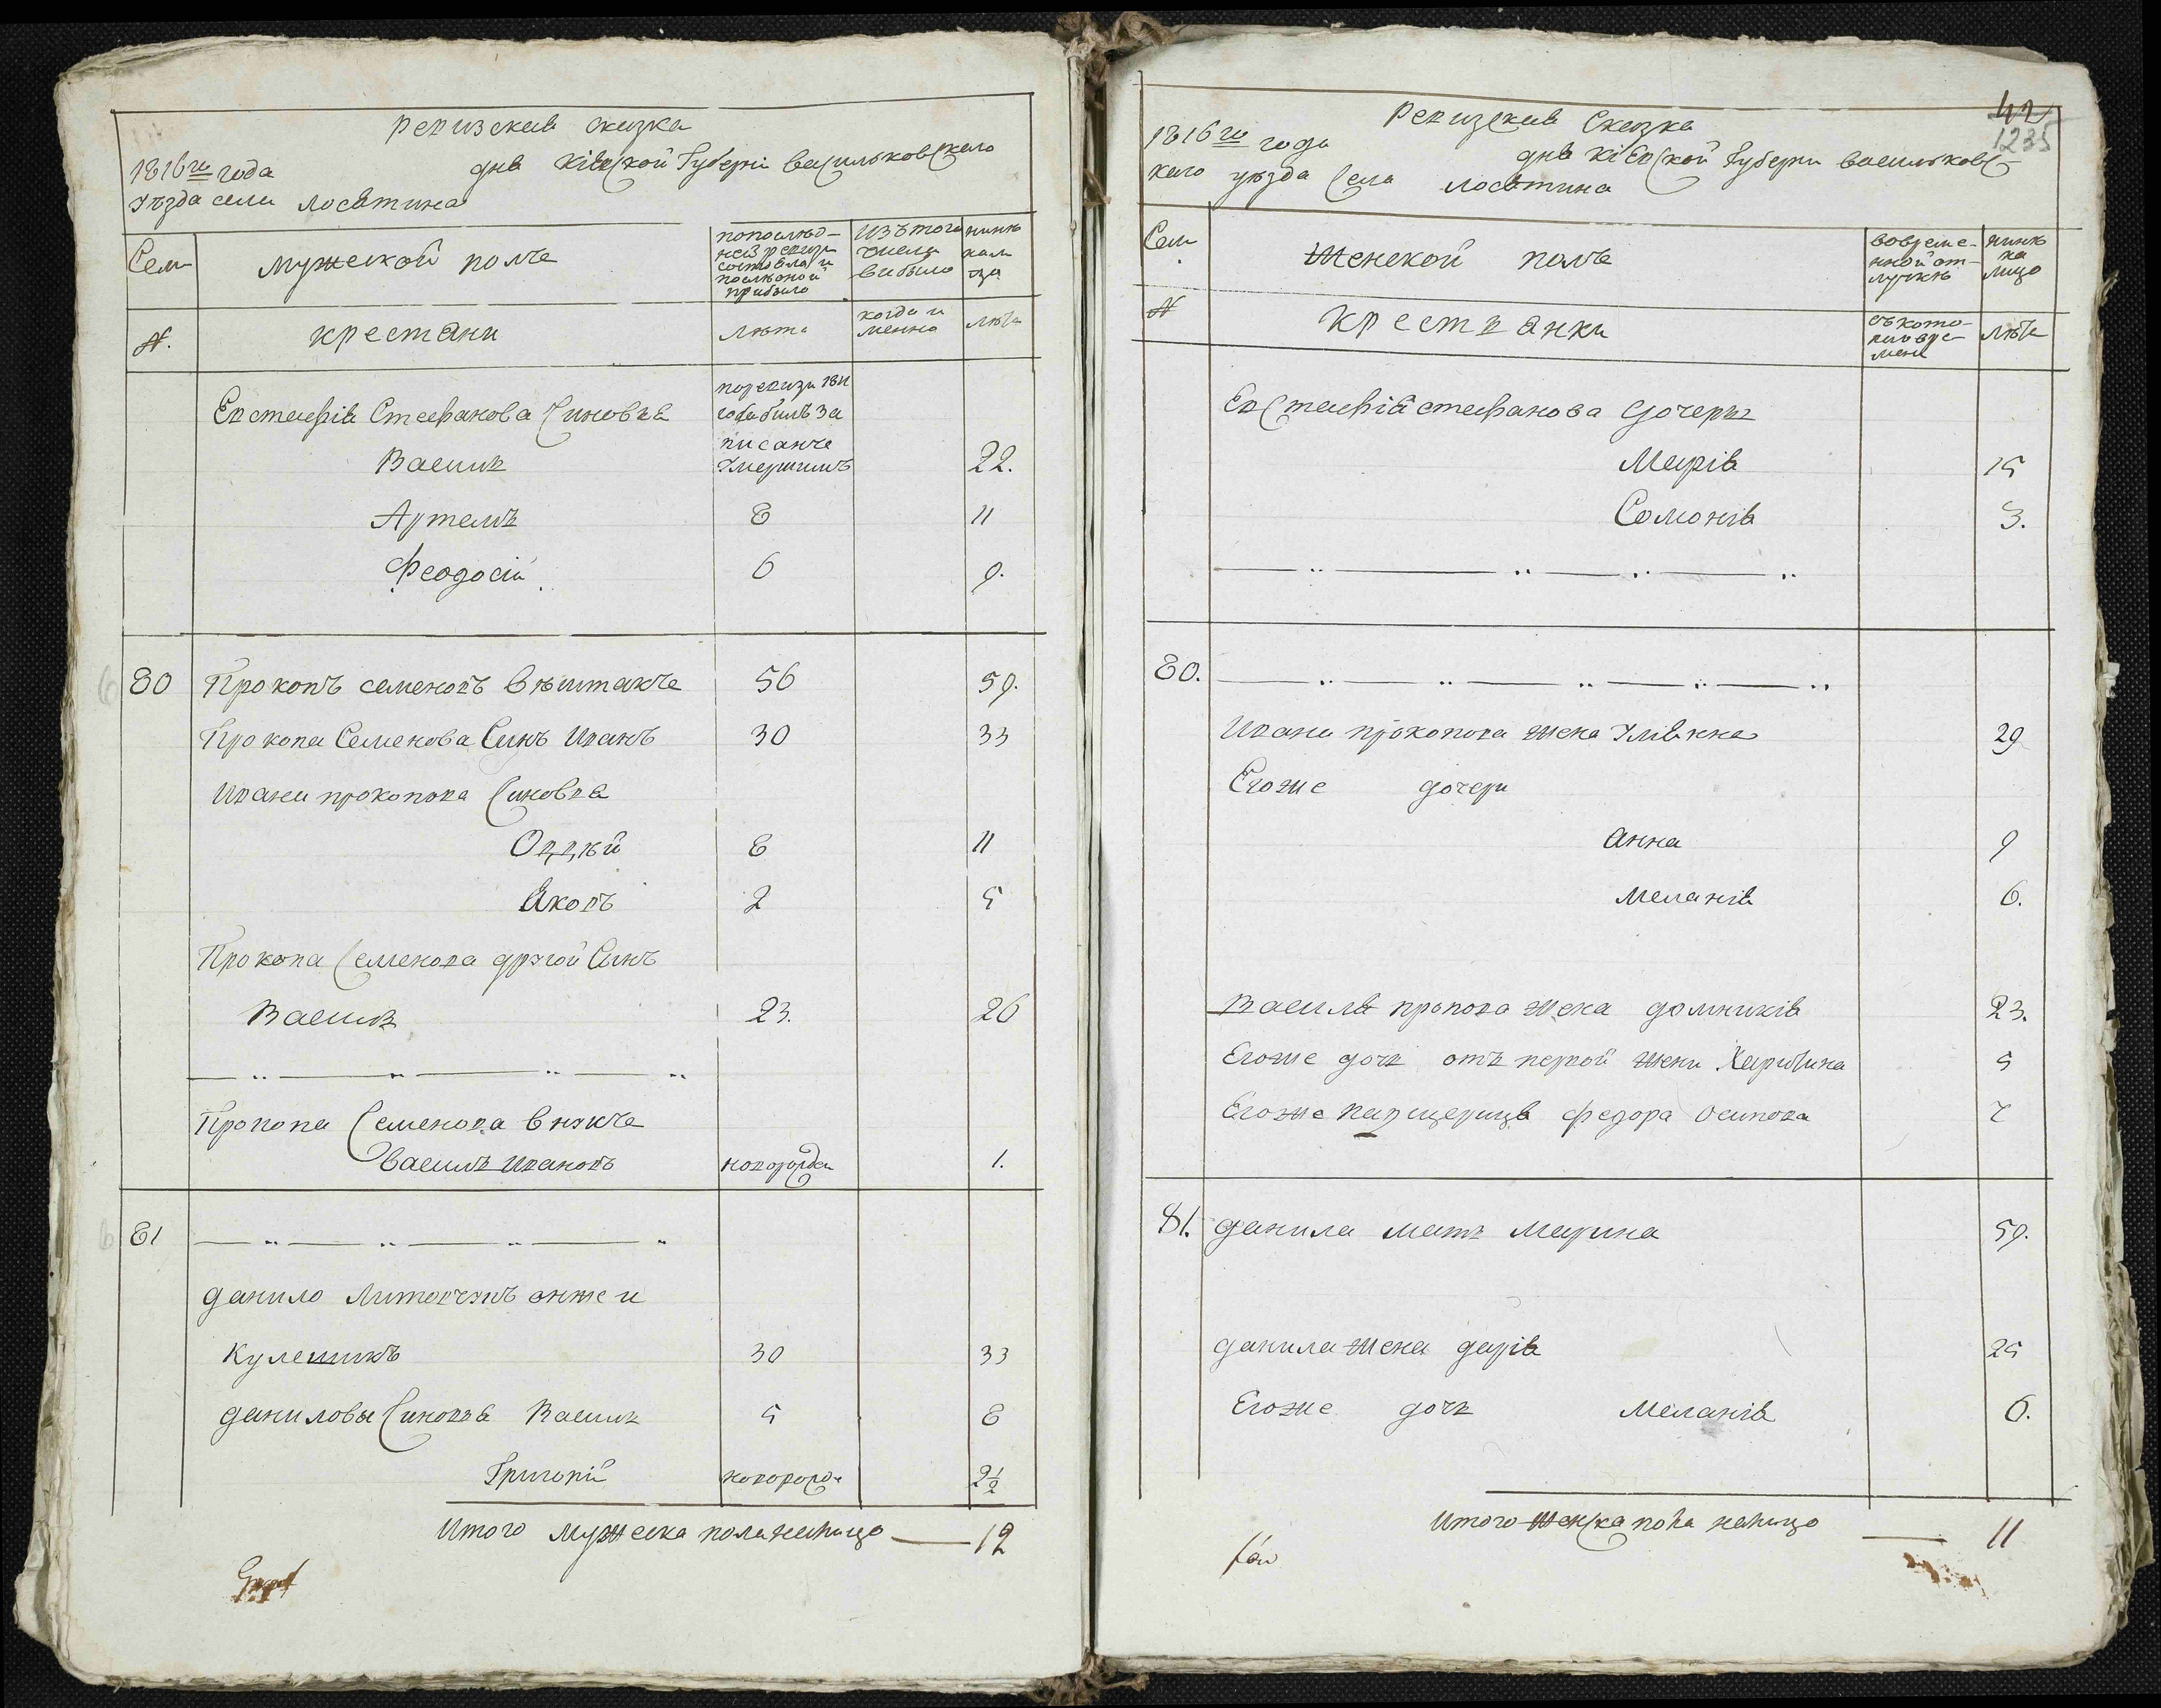 Ревизская сказка
1816го года дня Кіевской Губерніи Васильковского
уѣзда села Лосятина
Сем
мужеской полъ
попослѣд-
ней ревизи
состояла и
послѣоной
прибыло
изътого
числа
вибыло
нинѣ
нали
цо
№.
крестяни
лѣта
когда и
менно
лѣта
Евстафія Стефанова Синовья
поревизи 1811
года билъ за
писанъ
умершимъ
Василь 22.
Артемъ 8 11
Феодосій 6 9.
80 Прокопъ семеновъ Вѣштакъ 56 59.
Прокопа Семенова Синъ Иванъ 30 33
Ивана прокопова Синовья
Овдѣй 8 11
Яковъ 2 5
Прокопа Семенова другой Синъ
Василь 23. 26
Прокопа Семенова внукъ
Василь Ивановъ новорожден 1.
81
данило Литовчукъ онже и
Кулешикъ 30 33
даниловы Синовья Василь 5 8
Григорій новорожде 2 1/2
Итого мужеска пола налицо — 12
42
1235
Ревизская Сказка
1816го года дня Кіевской Губерни Васильковс-
каго уѣзда Села Лосятина
Сем
Женской полъ
вовреме-
нной от-
лучкѣ
нинѣ
на
лицо
№
Крестьянки
съкото-
раго вре-
мени
лѣта
Евстафія стефанова дочери
Марія 15
Соломія 3.
80.
Ивана прокопова жена Уліянна 29
Егоже дочери
Анна 9
Меланія 6.
Василя прокопова жена домникія 23.
Егоже дочь отъ первой жени Харитина 5
Егоже падщерица федора осипова 7
81. данила мать Марина 59.
данила жена дарія 25
Егоже дочь Меланія 6.
Итого женска пола налицо — 11